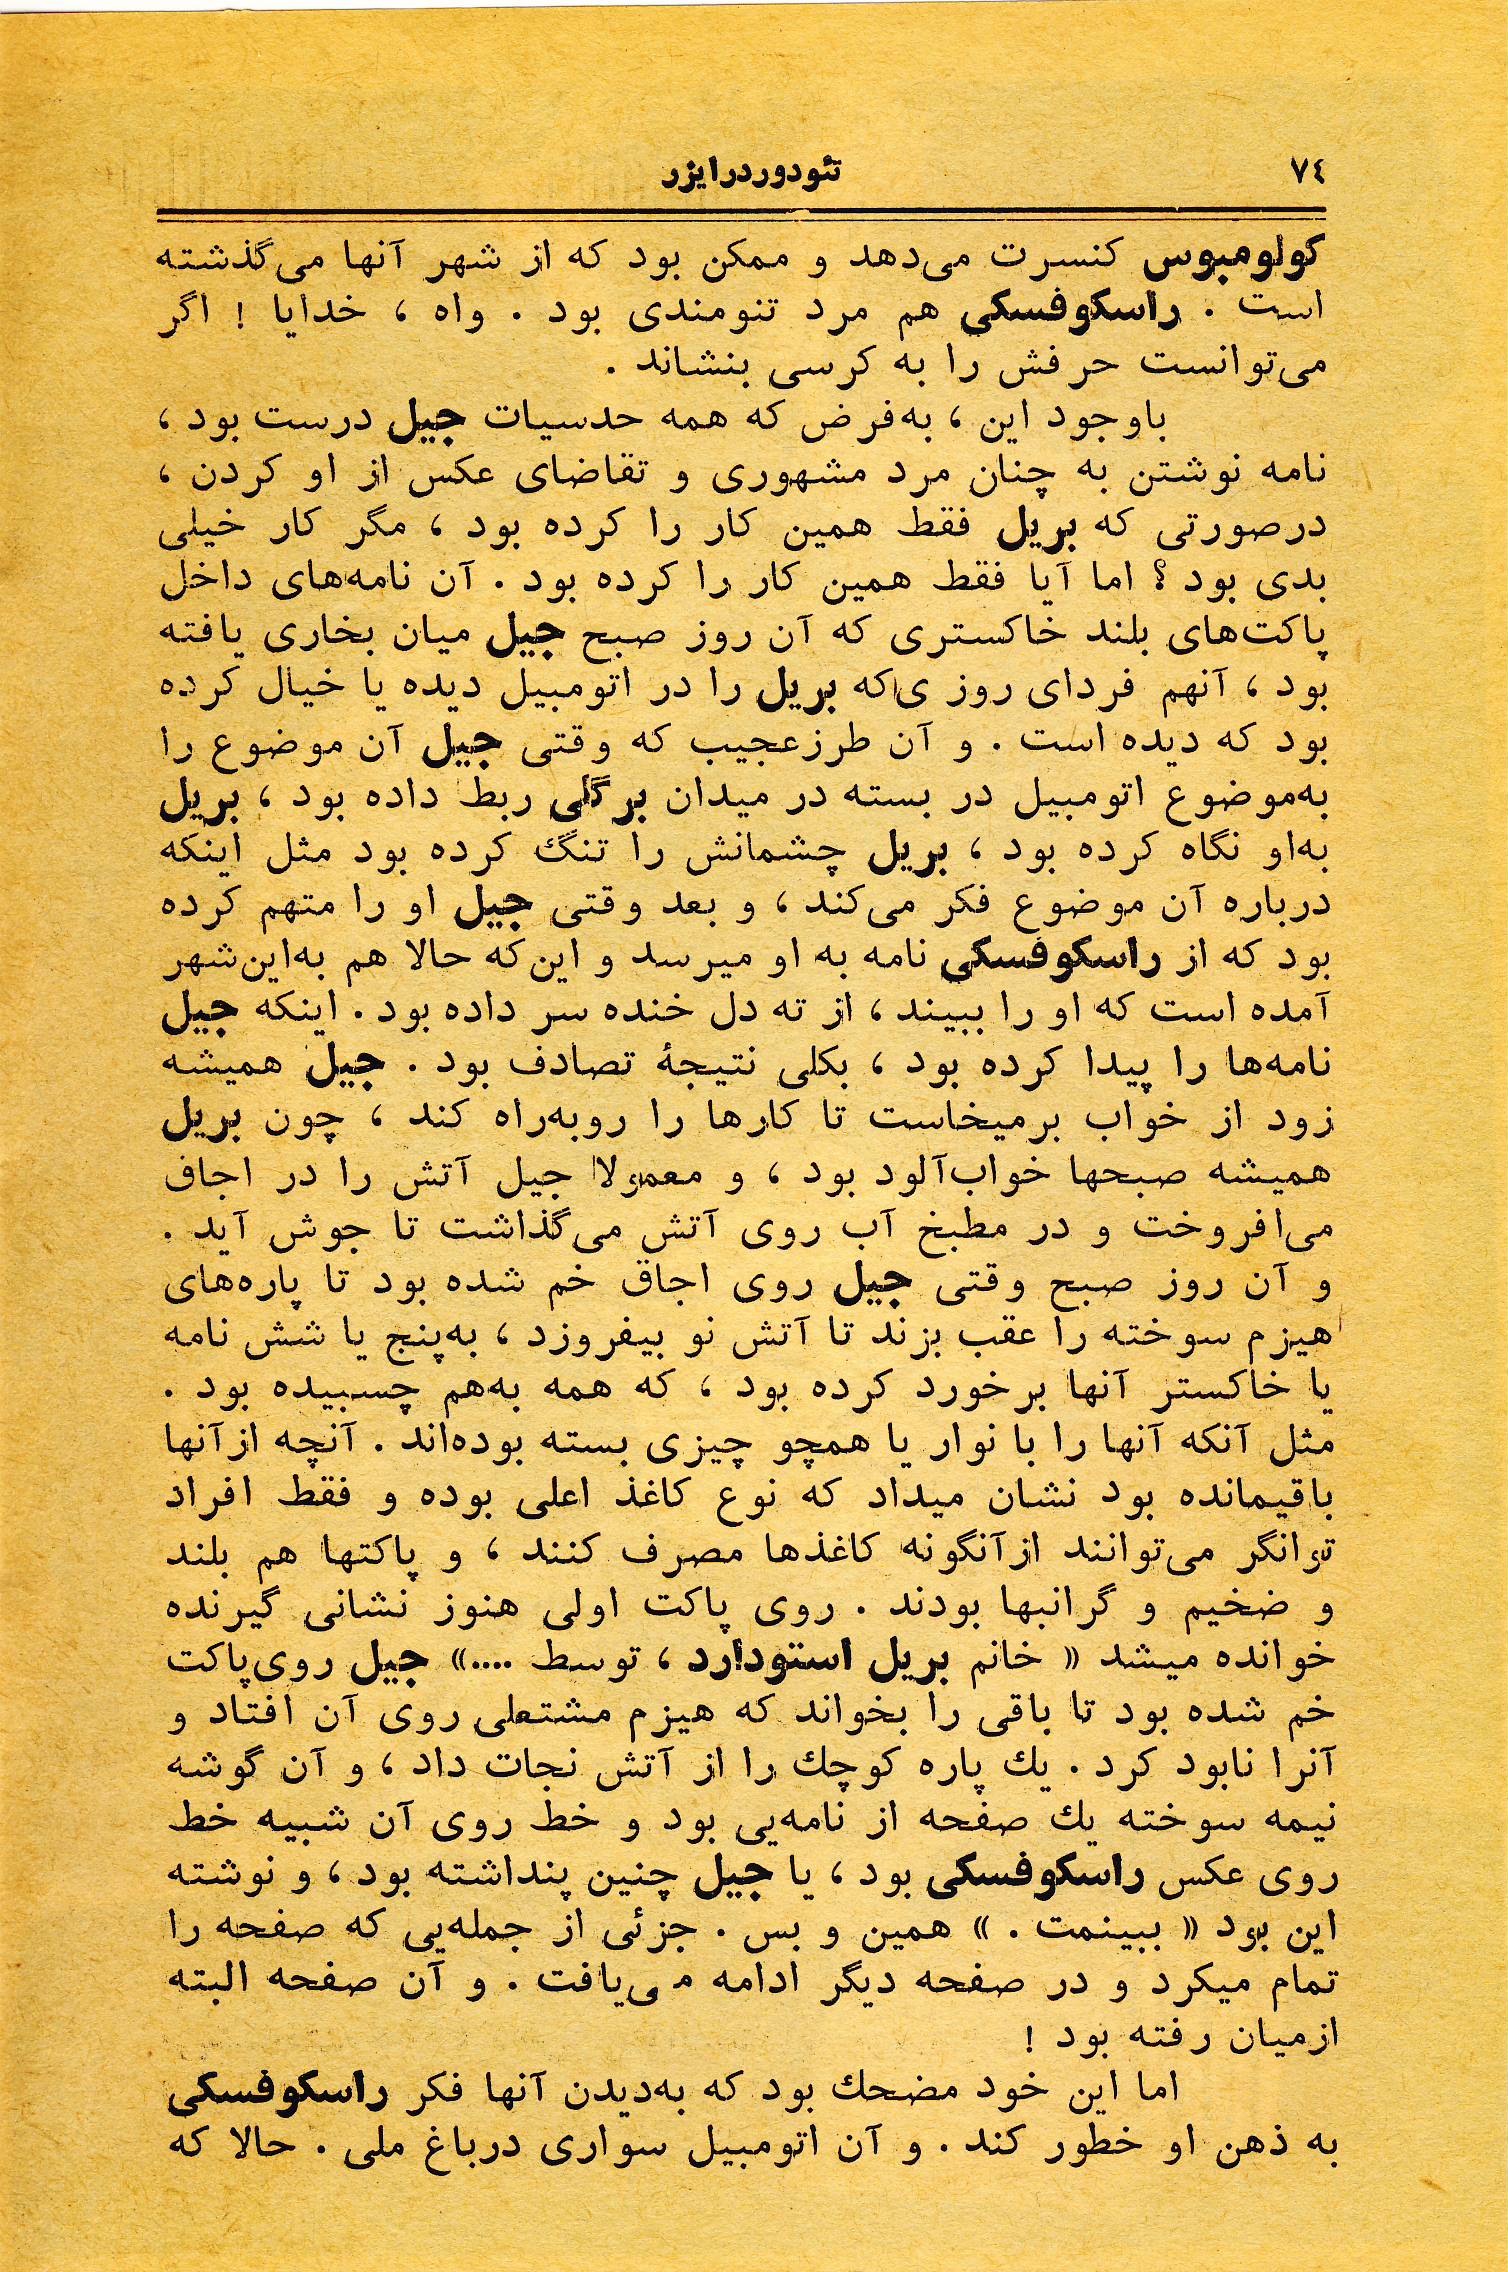 ٧٤
تئودوردرایزر
کولومبوس کنسرت می‌دهد و ممکن بود که از شهر آنها می‌گذشته
است . راسکوفسکی هم مرد تنومندی بود . واه ، خدایا ! اگر
می‌توانست حرفش را به کرسی بنشاند .
باوجود این ، به‌فرض که همه حدسیات جیل درست بود ،
نامه نوشتن به چنان مرد مشهوری و تقاضای عکس از او کردن ،
درصورتی که بریل فقط همین کار را کرده بود ، مگر کار خیلی
بدی بود ؟ اما آیا فقط همین کار را کرده بود . آن نامه‌های داخل
پاکت‌های بلند خاکستری که آن روز صبح جیل میان بخاری یافته
بود ، آنهم فردای روز ی‌که بریل را در اتومبیل دیده یا خیال کرده
بود که دیده است . و آن طرزعجیب که وقتی جیل آن موضوع را
به‌موضوع اتومبیل در بسته در میدان برگلی ربط داده بود ، بریل
به‌او نگاه کرده بود ، بریل چشمانش را تنگ کرده بود مثل اینکه
درباره آن موضوع فکر می‌کند ، و بعد وقتی جیل او را متهم کرده
بود که از راسکوفسکی نامه به او میرسد و این‌که حالا هم به‌این‌شهر
آمده است که او را ببیند ، از ته دل خنده سر داده بود . اینکه جیل
نامه‌ها را پیدا کرده بود ، بکلی نتیجۀ تصادف بود . جیل همیشه
زود از خواب برمیخاست تا کارها را روبه‌راه کند ، چون بریل
همیشه صبحها خواب‌آلود بود ، و معمولا جیل آتش را در اجاف
می‌افروخت و در مطبخ آب روی آتش می‌گذاشت تا جوش آید .
و آن روز صبح وقتی جیل روی اجاق خم شده بود تا پاره‌های
هیزم سوخته را عقب بزند تا آتش نو بیفروزد ، به‌پنج یا شش نامه
یا خاکستر آنها برخورد کرده بود ، که همه به‌هم چسبیده بود .
مثل آنکه آنها را با نوار یا همچو چیزی بسته بوده‌اند . آنچه ازآنها
باقیمانده بود نشان میداد که نوع کاغذ اعلی بوده و فقط افراد
توانگر می‌توانند ازآنگونه کاغذها مصرف کنند ، و پاکتها هم بلند
و ضخیم و گرانبها بودند . روی پاکت اولی هنوز نشانی گیرنده
خوانده میشد « خانم بریل استودارد ، توسط ....» جیل روی‌پاکت
خم شده بود تا باقی را بخواند که هیزم مشتعلی روی آن افتاد و
آنرا نابود کرد . یك پاره کوچك را از آتش نجات داد ، و آن گوشه
نیمه سوخته یك صفحه از نامه‌یی بود و خط روی آن شبیه خط
روی عکس راسکوفسکی بود ، یا جیل چنین پنداشته بود ، و نوشته
این بود « ببینمت . » همین و بس . جزئی از جمله‌یی که صفحه را
تمام میکرد و در صفحه دیگر ادامه می‌یافت . و آن صفحه البته
ازمیان رفته بود !
اما این خود مضحك بود که به‌دیدن آنها فکر راسکوفسکی
به ذهن او خطور کند . و آن اتومبیل سواری درباغ ملی . حالا که